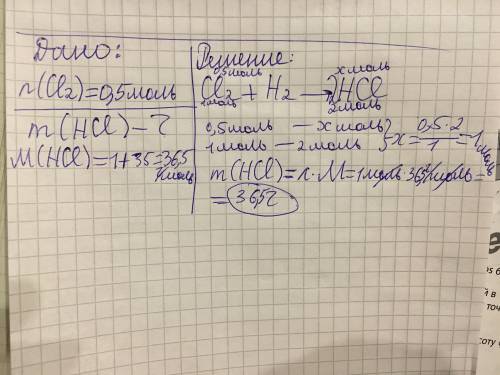 Дано:
n(Cl₂)=0,5моль
m(HCl)-?
M(HCl)=1+35=36,5
г/моль
Решение:
0,5моль x моль
Cl₂ + H₂ → 2HCl
1моль 2моль
0,5моль — x моль
1моль — 2моль } x = 0,5·2/1 = 1моль
m(HCl)=n·M=1моль·36,5г/моль=
=36,5г
s 6
й в
точ
соту